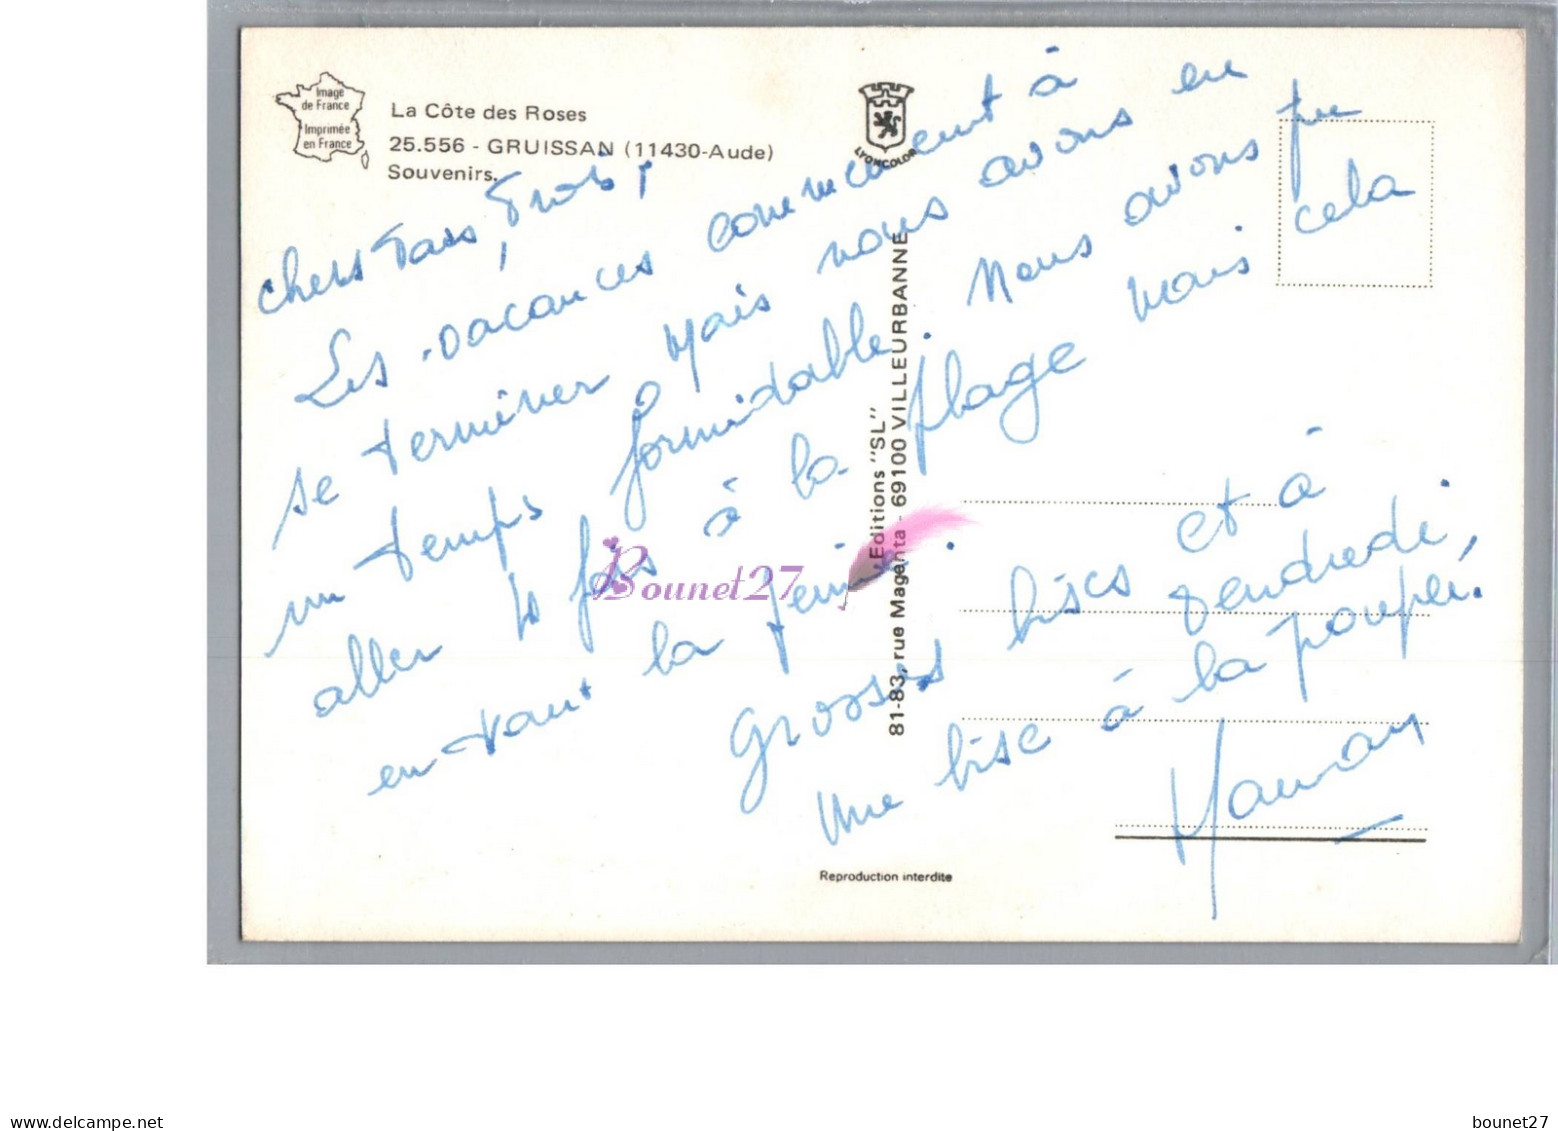 Image
de France
Imprimée
en France
La Côte des Roses
25.556 - GRUISSAN (11430-Aude)
Souvenirs.
LYONCOLOR
chers Tous Trois,
Les vacances commencent à
se terminer mais nous avons eu
un temps formidable. Nous avons pu
aller fois à la plage mais cela
en vaut la peine.
Grosses bises et à
vendredi,
Une bise à la poupée.
Maman
Editions "SL"
81-83, rue Magenta - 69100 VILLEURBANNE
Reproduction interdite
Bounet27
delcampe.net
bounet27